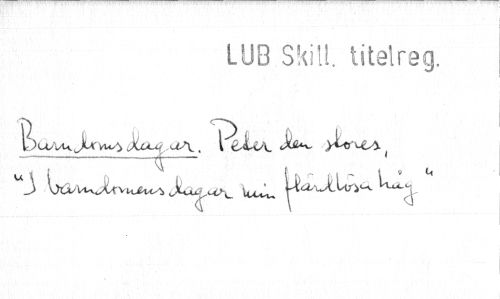 LUB Skill. titelreg.
Barndomsdagar. Peter den stores,
"I barndomens dagar min flärdlösa håg"